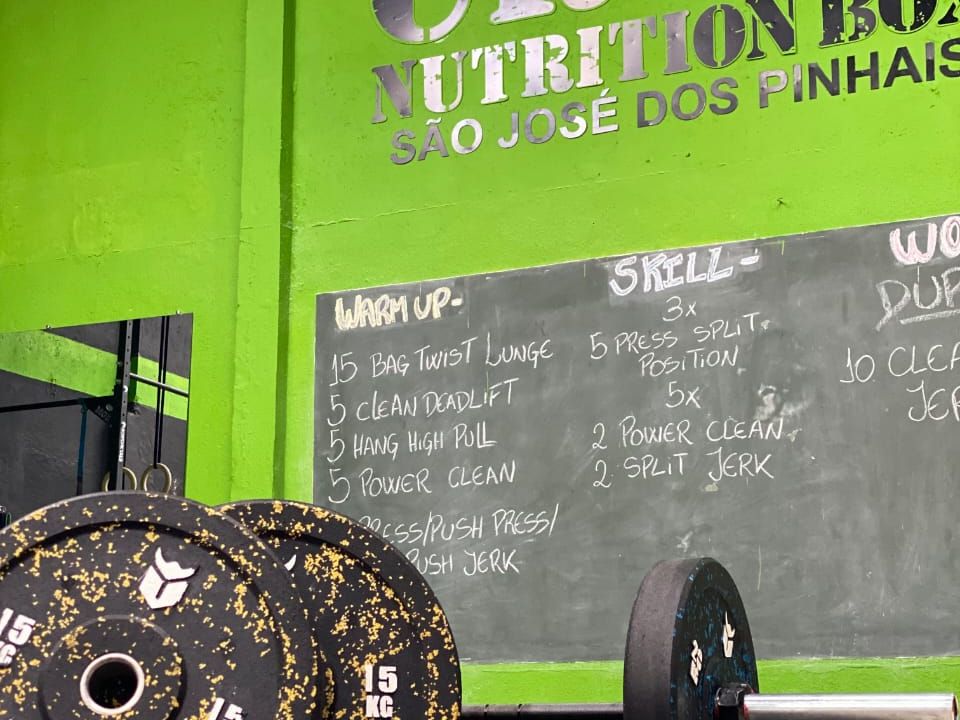 NUTRITION BOX
SÃO JOSÉ DOS PINHAIS
WARM UP-
15 BAG TWIST LUNGE
5 CLEAN DEADLIFT
5 HANG HIGH PULL
5 POWER CLEAN
PRESS/PUSH PRESS/
PUSH JERK
SKILL -
3x
5 PRESS SPLIT
POSITION
5x
2 POWER CLEAN
2 SPLIT JERK
WO
DUP
10 CLEA
JER
15
KG
15
15
KG